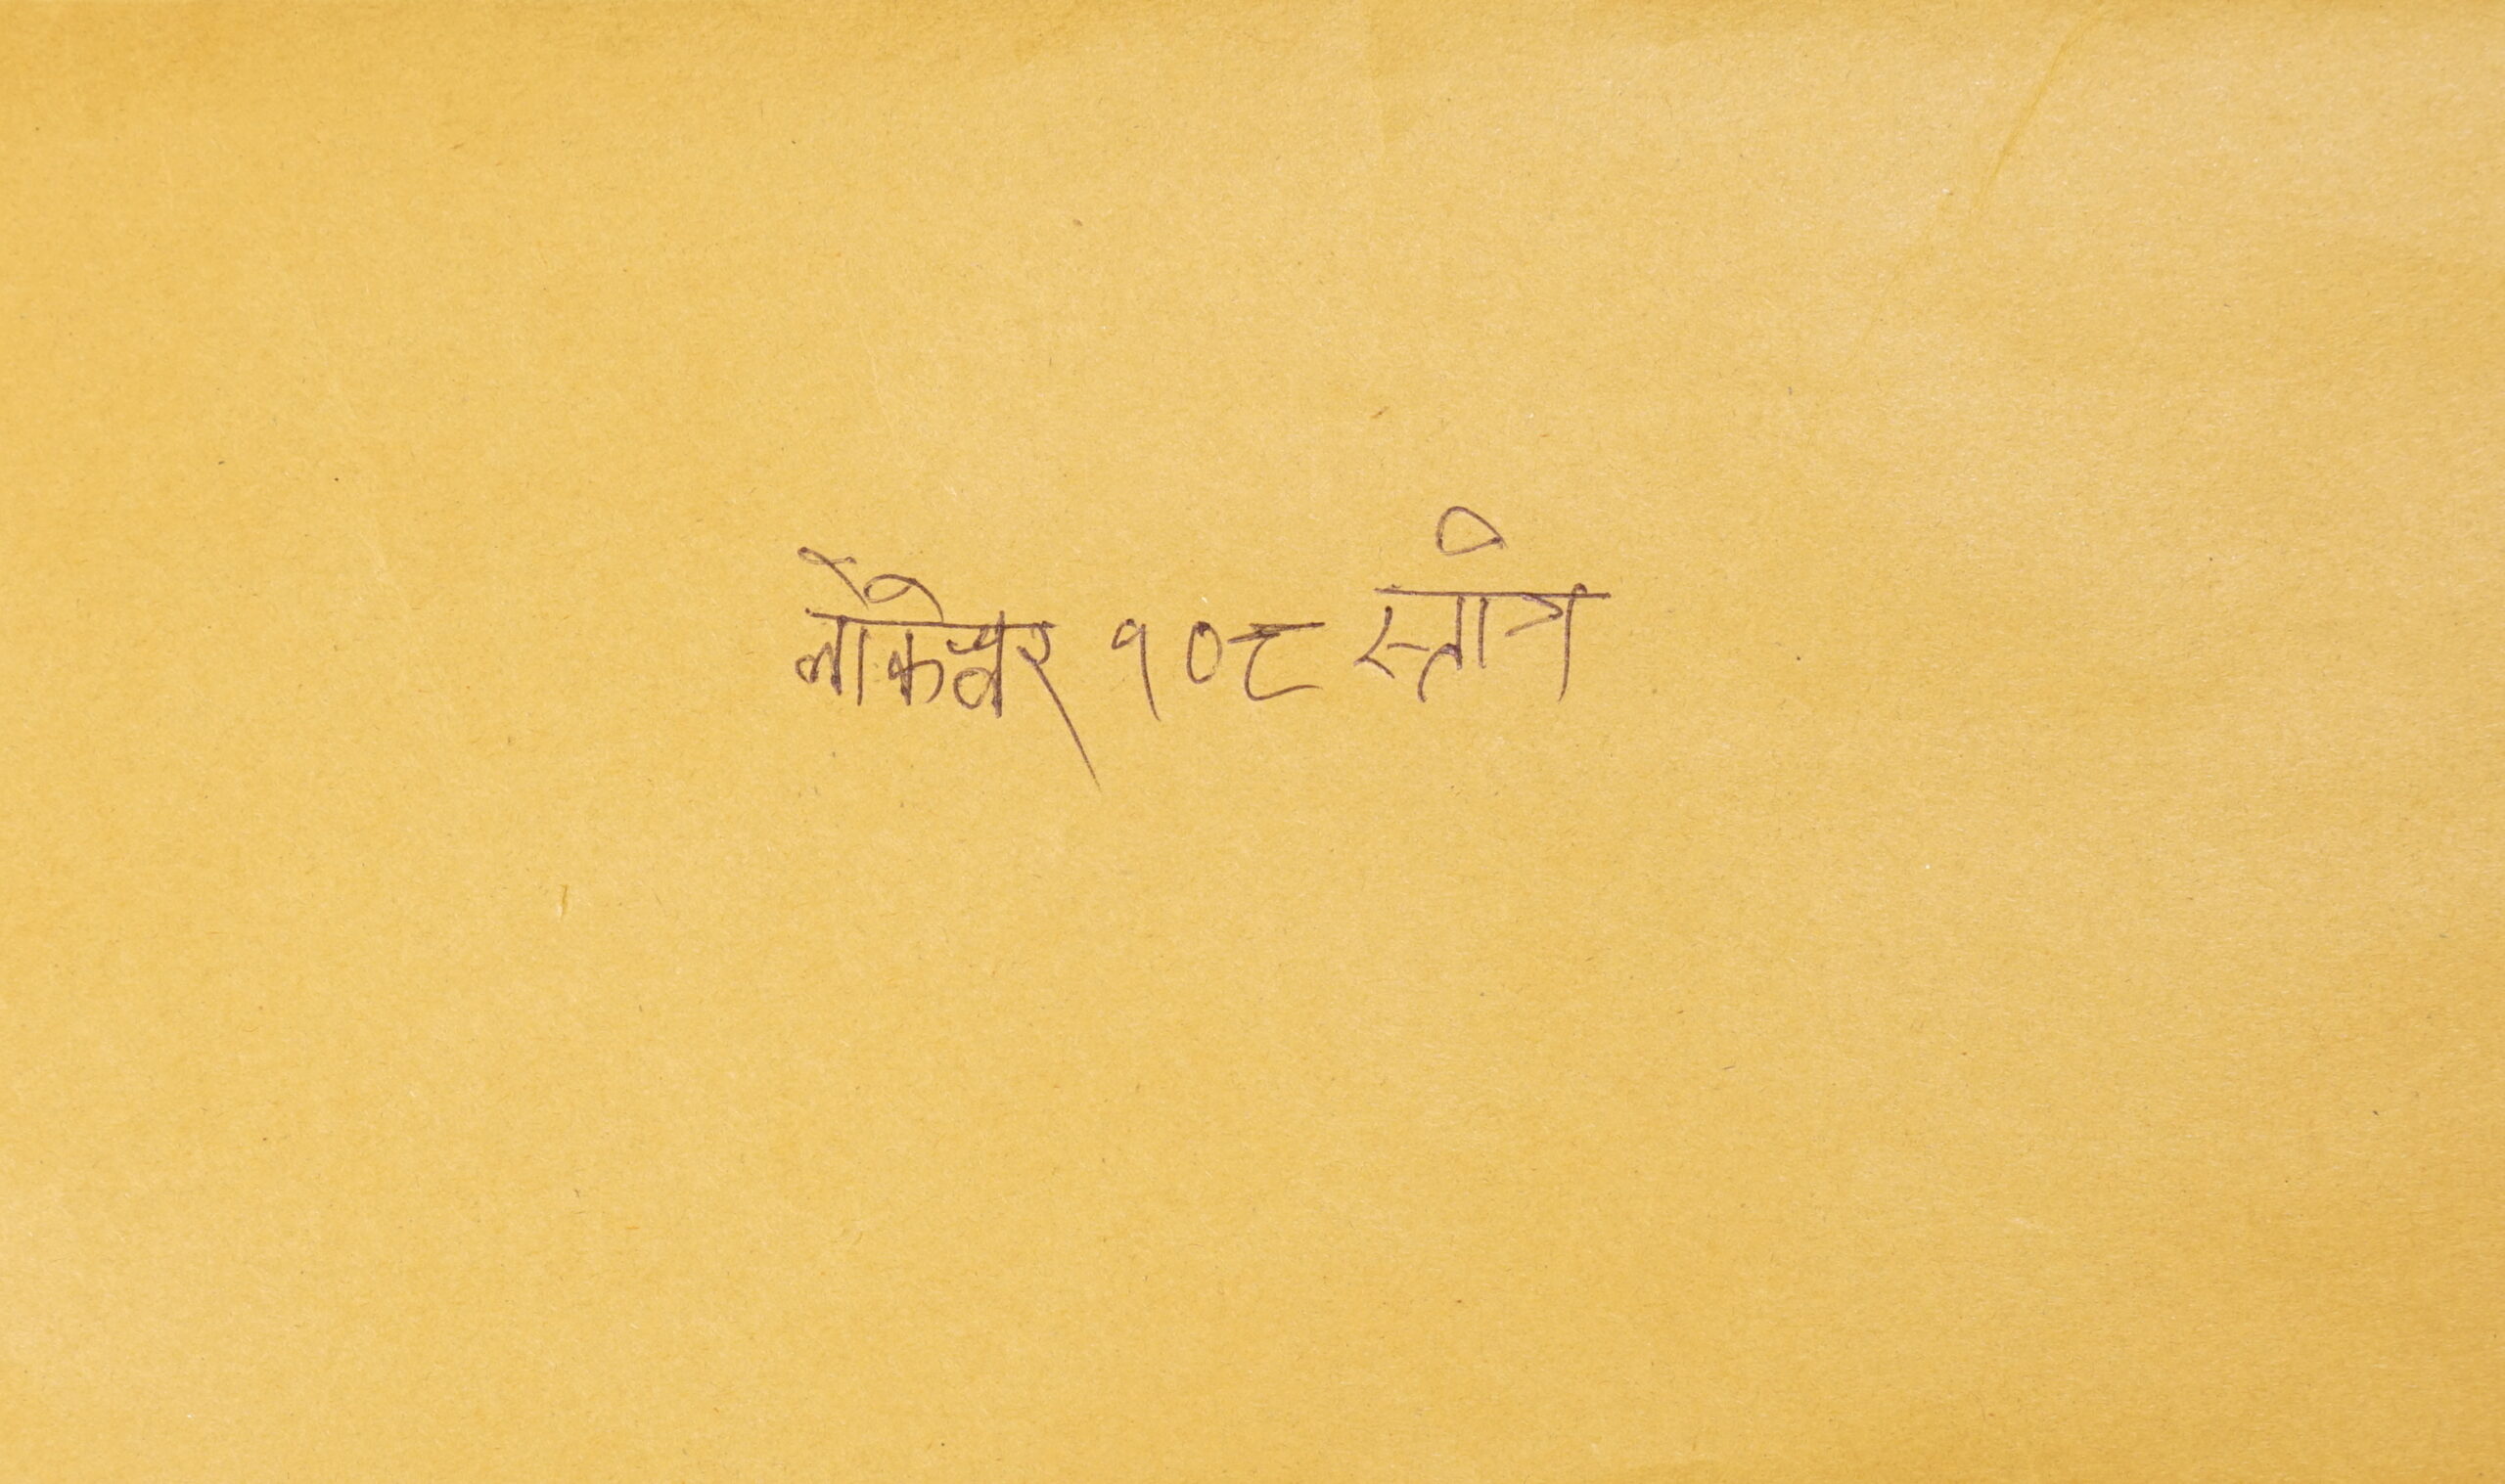 लोकेश्वर १०८ स्तोत्र